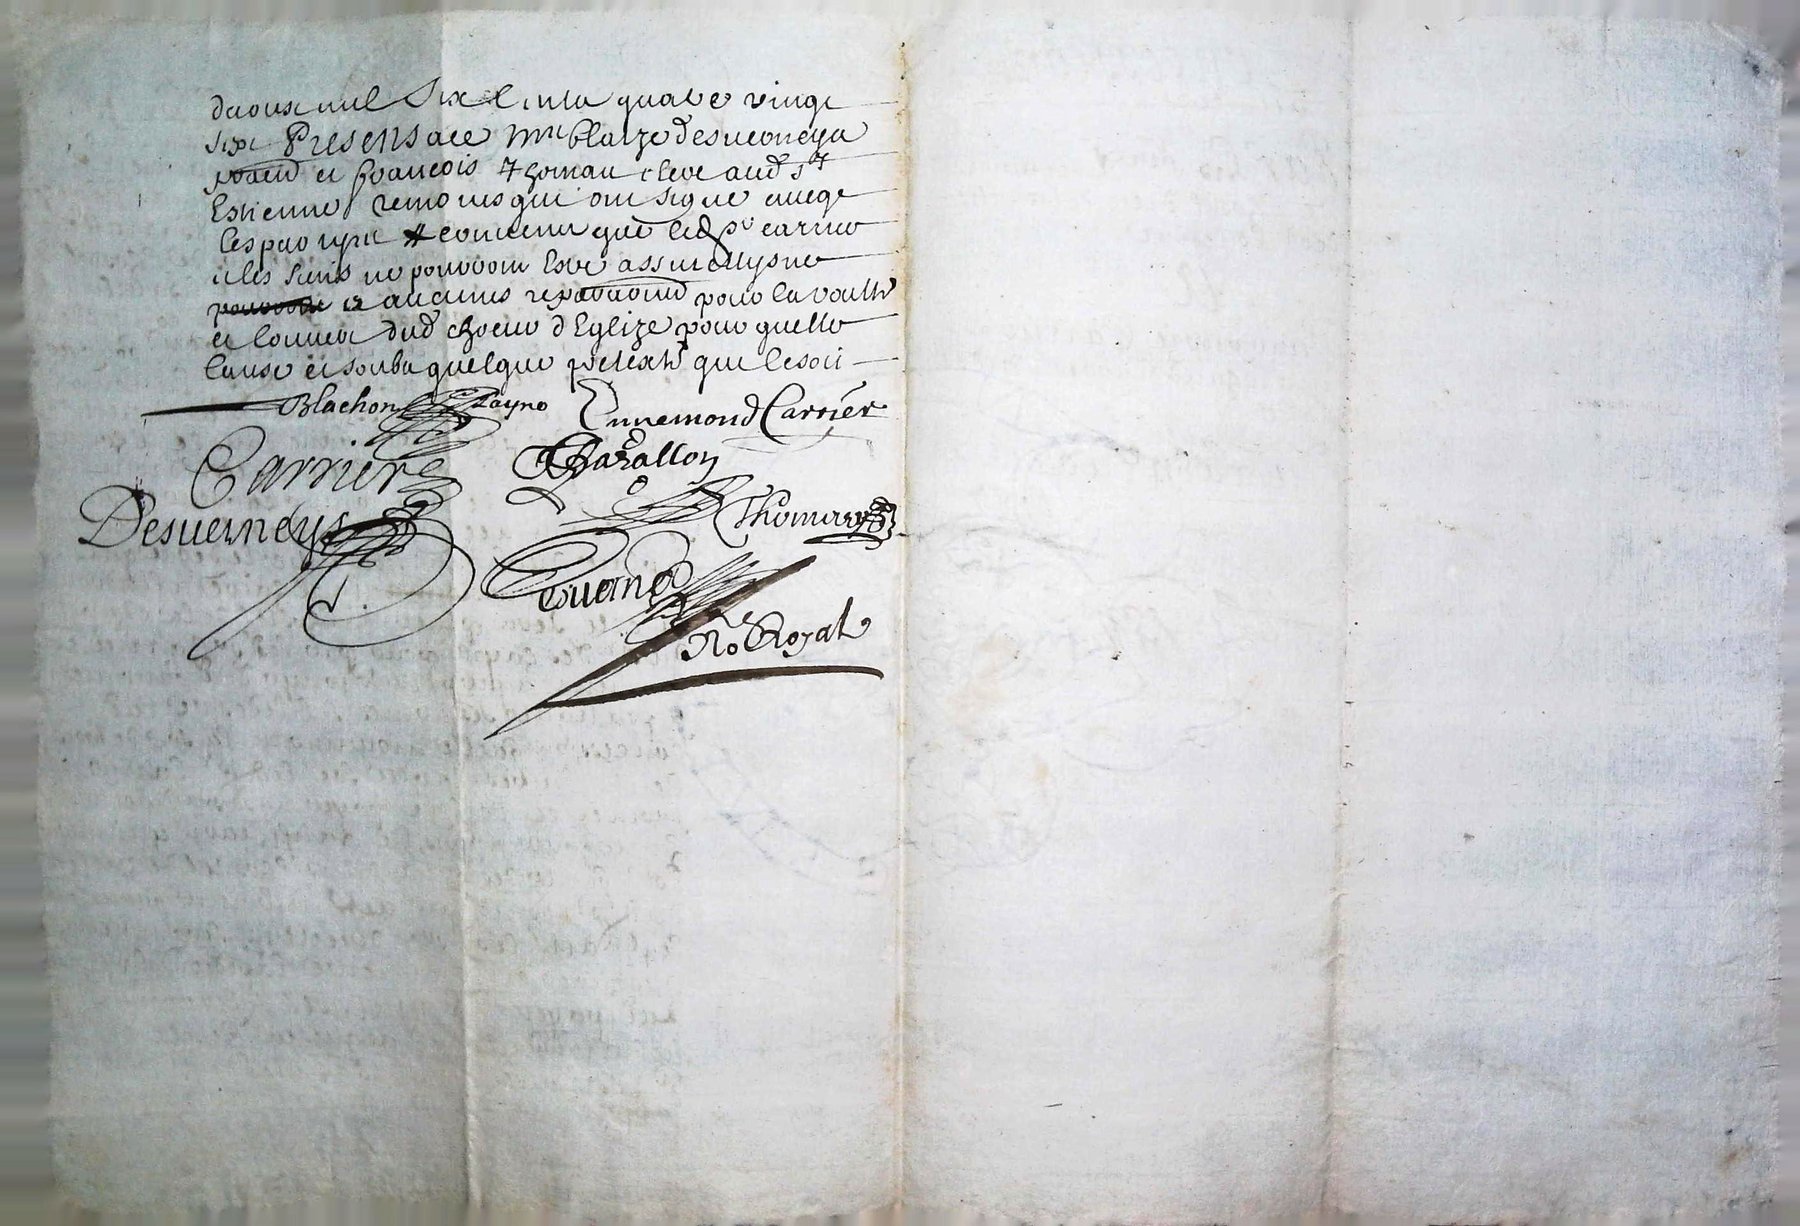 daoust mil Six Cents quatre vingt
six Presens ace Mre Blaize desverneys
et francois Thomau clerc aud St
Estienne temoins qui ont signe avecq
les parties # convenu que led Sr carrier
et les siens ne pourront estre assurettys ne
a aucunes reparations pour la voulte
et couvert dud choeur d Eglize pour quelle
cause et soubz quelque pretexte que ce soit
Blachon Payre Ennemond Carrier
Carrier Bazallon
Desverneys Thomas
No Royal